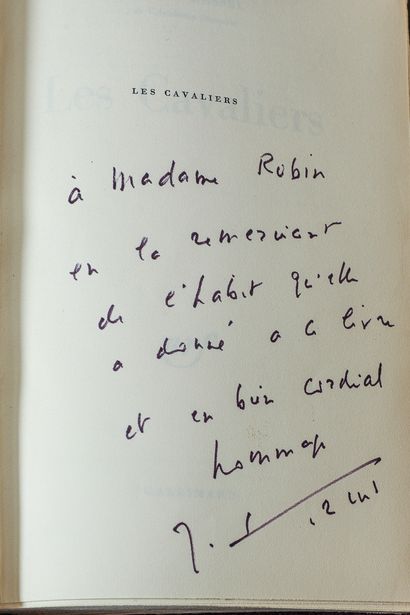 LES CAVALIERS
à Madame Robin
en la remerciant
de l'habit qu'elle
a donné à ce livre
et en bien cordial
hommage
J.